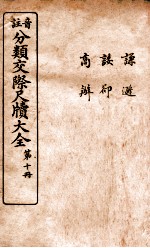 謙遜
諉卻
商辦
音註
分類交際尺牘大全
第十冊